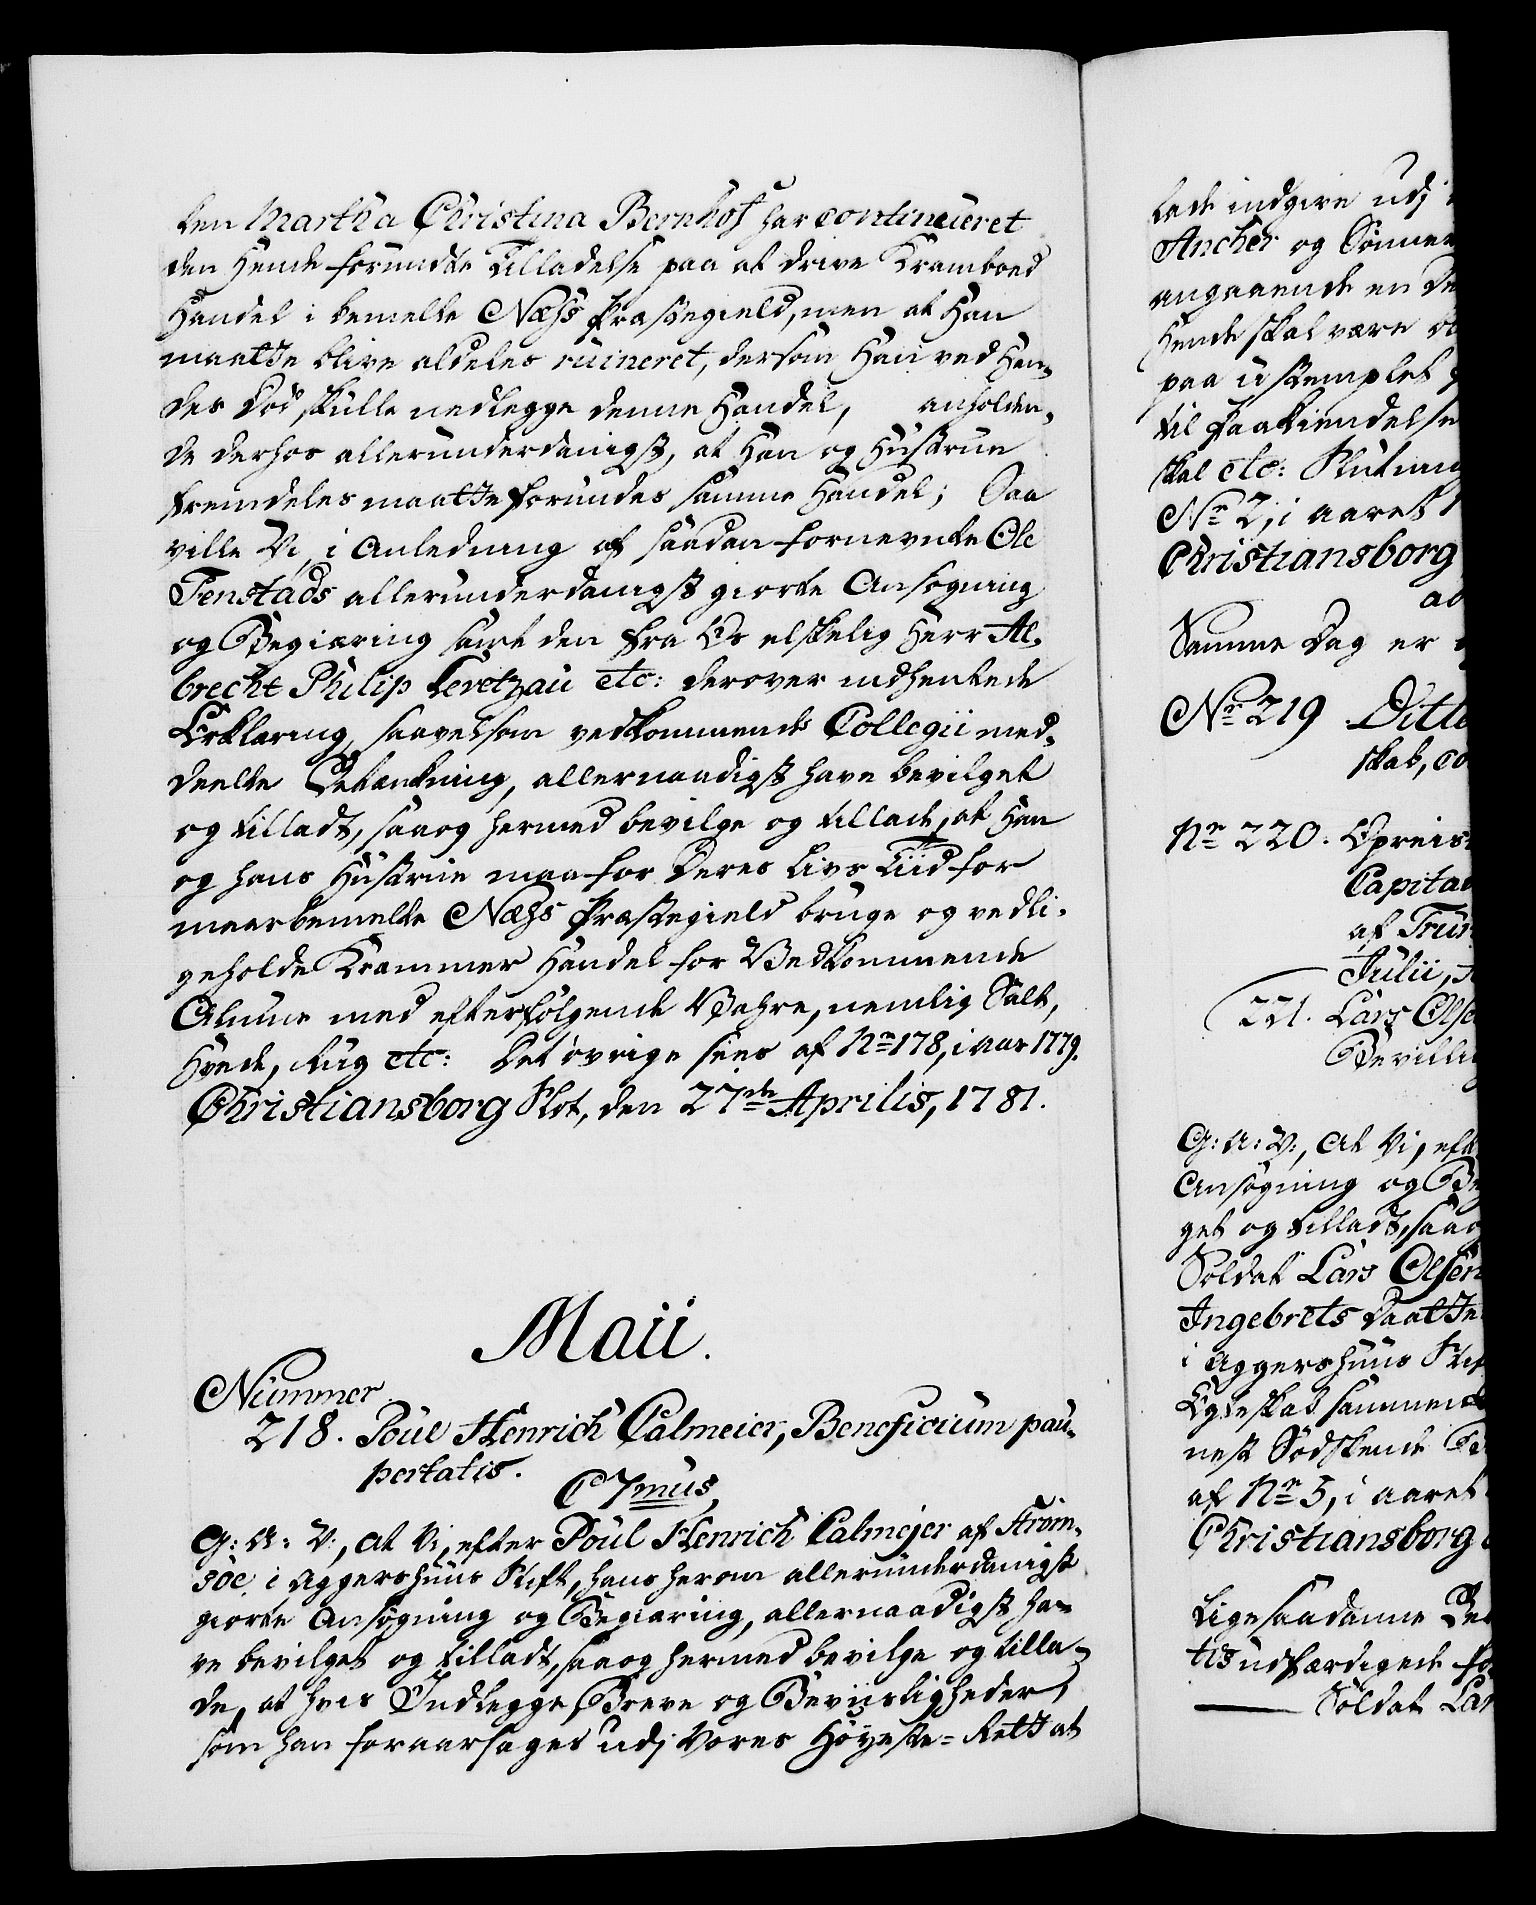 den Martha Christina Bernhof har continueret
den Hende forundte Tilladelse paa at drive Kramboed
Handel i bemelte Næhs Præstegield, men at Han
maatte blive aldeles ruineret, dersom Han ved Hen-
des Død skulle nedlegge denne Handel, anholden-
de derhos allerunderdanigst, at Han og Hustrue
fremdeles maatte forundes samme Handel; Saa
ville Vi, i Anledning af saadan fornevnte Ole
Tenstads allerunderdanigst giorte Ansøgning
og Begiæring samt den fra Os elskelig Herr Al-
brecht Philip Levetzau etc: derover indhentede
Erklæring, saavelsom vedkommende Collegii med-
deelte Betænkning, allernaadigst have bevilget
og tilladt, saaog hermed bevilge og tillade, at Han
og hans Hustrue maa for Deres Livs Tiid for
meerbemelte Næhs Præstegield bruge og vedli-
geholde Krammer Handel for Vedkommende
Almue med efterfølgende Vahre, nemlig Salt,
Hvede, Rug etc: Det øvrige sees af No 178, i aar 1779.
Christiansborg Slot, den 27de Aprilis, 1781.
Maii.
Nummer
218. Poul Henrich Calmeier, Beneficium pau-
pertatis.
C 7mus,
G: A: V:, at Vi, efter Poul Henrich Calmejer af Strøm-
søe i Aggershuus Stift, hans herom allerunderdanigst
giorte Ansøgning og Begiæring, allernaadigst ha-
ve bevilget og tilladt, saaog hermed bevilge og tilla-
de, at hvis Indlegge, Breve og Beviisligheder,
som han foraarsages udj Vores Høyeste-Rett at
lade indgive udj
Ancher og Sønner
angaaende en
Hende skal være
paa ustemplet
til Paakiendelse
skal etc: Slutning
No 2, i aaret
Christiansborg
Samme Dag er
No 219 Ditle
skab, co
No 220: Opreis-
Capitai
af Trun
Julii,
221. Lars Olse
Bevillin
G: A: V:, At Vi, eft
Ansøgning og Be
get og tilladt, saao
Soldat Lars Olsen
Ingebrets Daatter
i Aggershuus Stif
Egteskab sammen
nest Sødskende B
af No 5, i aaret
Christiansborg
Ligesaadanne Be
tis udfærdigede fo
Soldat Lar